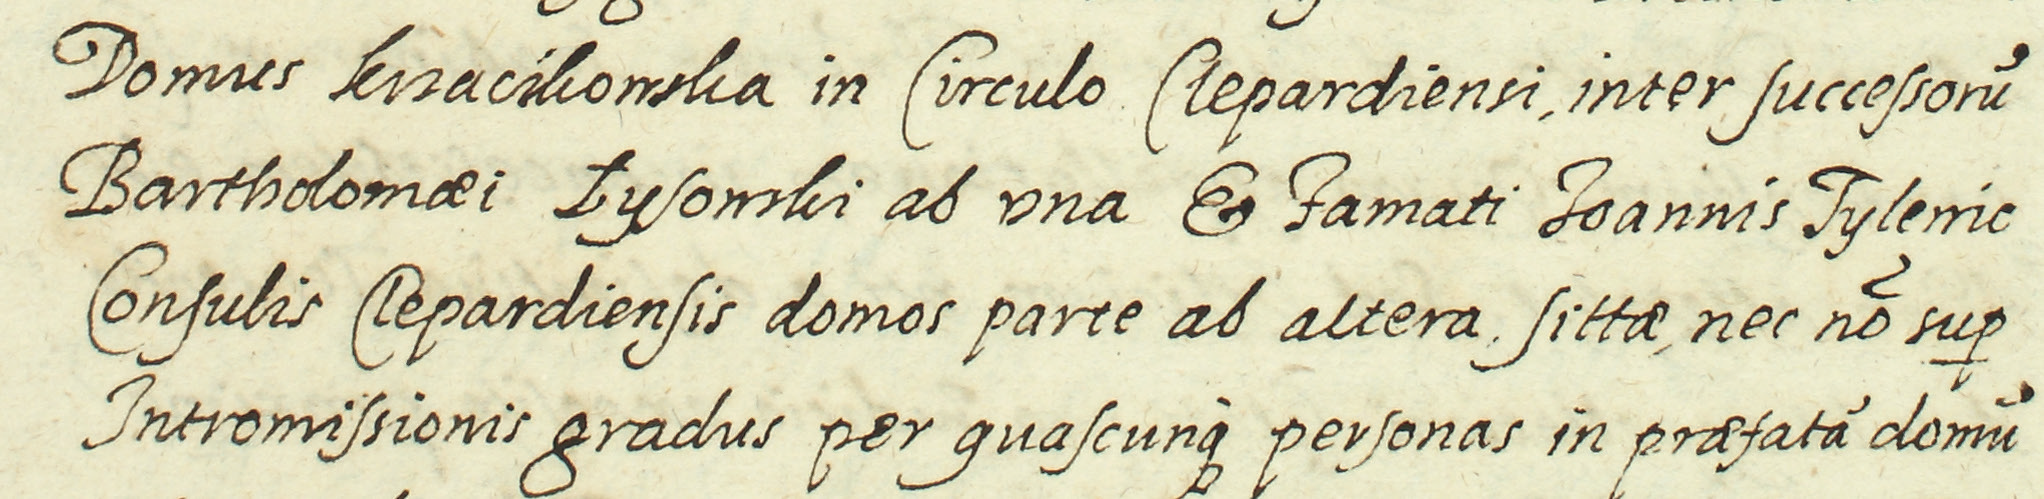 Domus in Circulo Clepardiensi, inter successorũ
Bartholomæi Łysowski ab vna & Famati Joannis Tylerric
Consulis Clepardiensis domos parte ab altera, sittæ, nec nõ sup
Intromissionis gradus per quascunq̀ personas in præfatã domũ